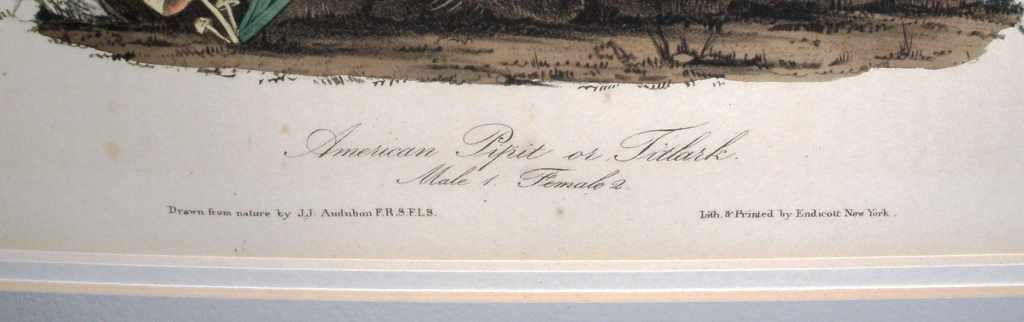 American Pipit or Titlark.
Male 1. Female 2.
Drawn from nature by J.J. Audubon F.R.S.F.L.S.
Lith. & Printed by Endicott New York.